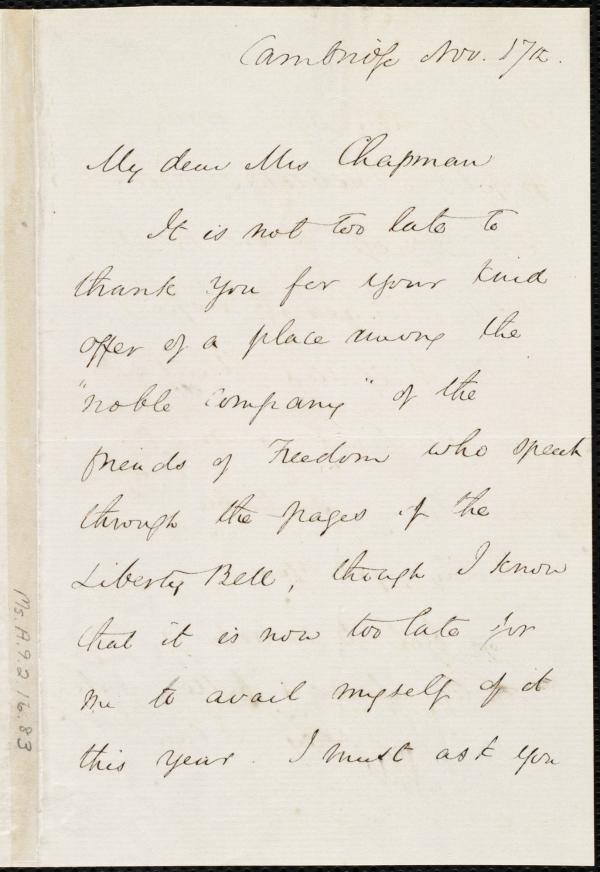 Cambridge Nov. 17th.
My dear Mrs Chapman
It is not too late to
thank you for your kind
offer of a place among the
"noble company" of the
friends of Freedom who speak
through the pages of the
Liberty Bell, though I know
that it is now too late for
me to avail myself of it
this year. I must ask you
Ms. A.9.2.16.83